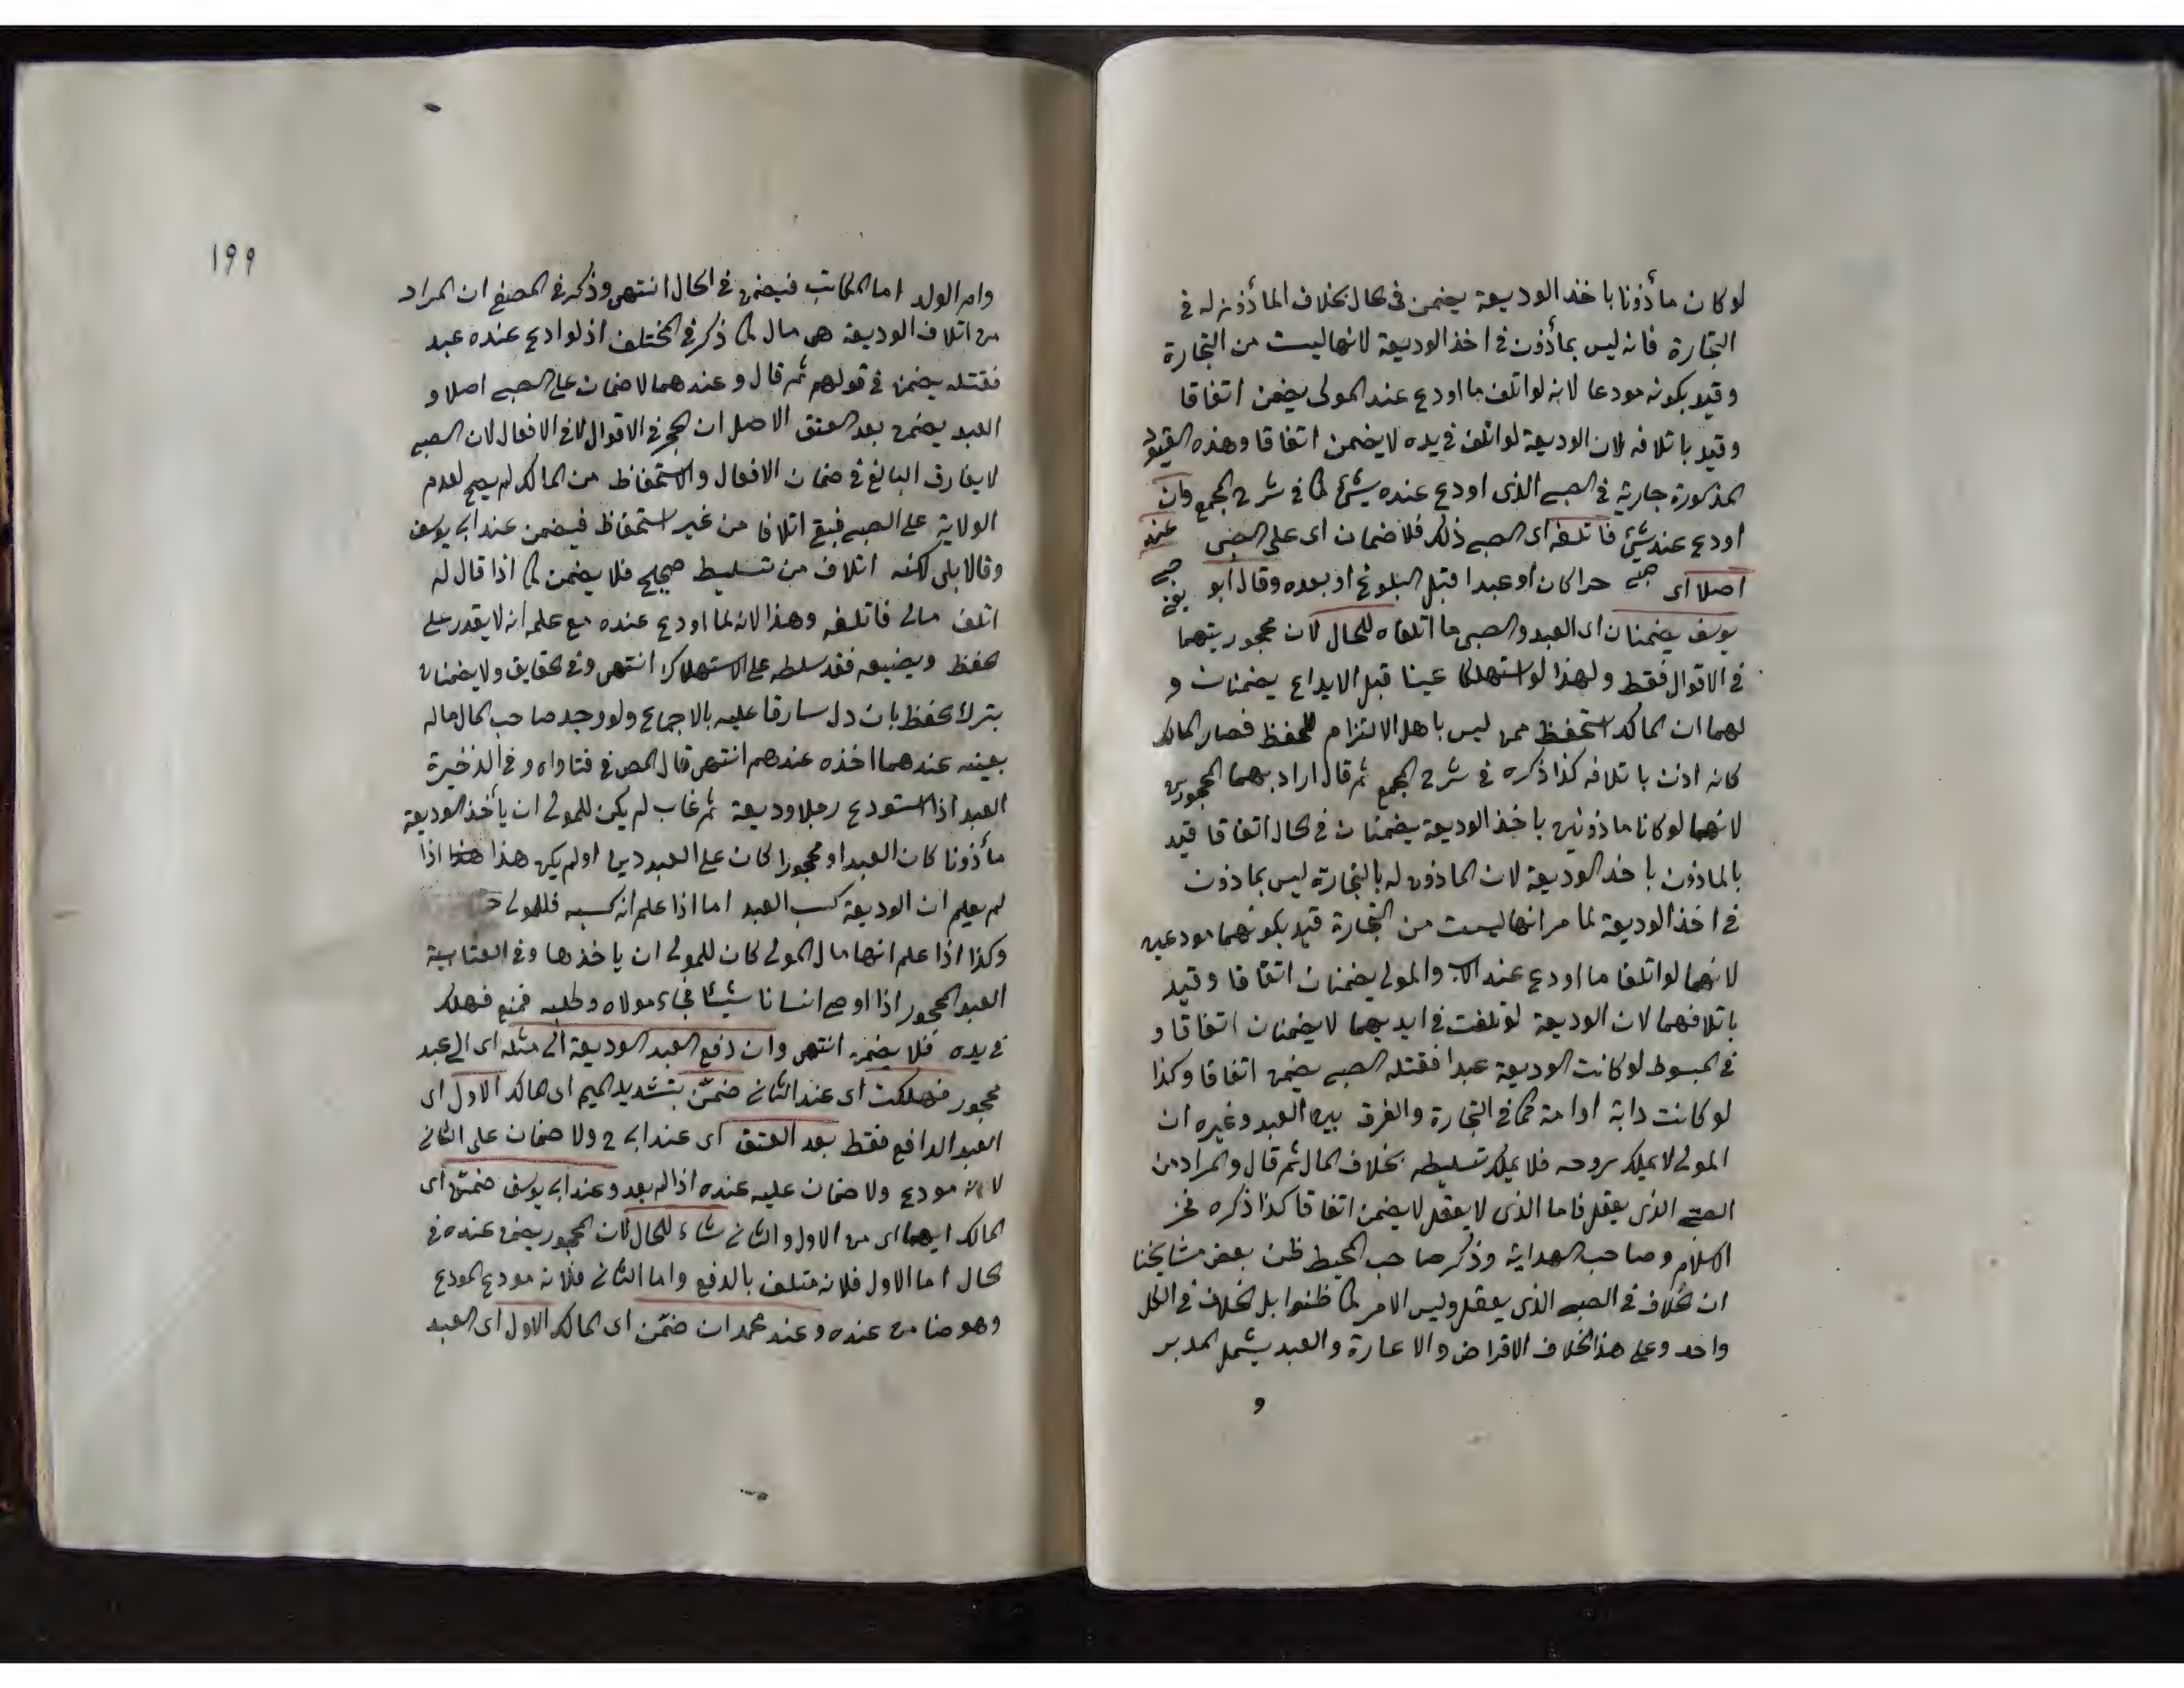 لو كان مأذونا باخذ الوديعة يضمن فى الحال بخلاف المأذون له فى
التجارة فانه ليس بمأذون فى اخذ الوديعة لانها ليست من التجارة
وقيد بكونه مودعا لانه لو اتلف ما اودع عند المولى يضمن اتفاقا
وقيد باتلافه لان الوديعة لو اتلف فى يده لا يضمن اتفاقا وهذه القيود
المذكورة جارية فى الصبى الذى اودع عنده شئ كما فى شرح المجمع وان
اودع عند شئ فاتلفه اى الصبى ذلك فلا ضمان اى على الصبى عند
اصلا اى حرا كان او عبدا قبل البلوغ او بعده وقال ابو
يوسف يضمنان اى العبد والصبى ما اتلفاه للحال لان محجوريتهما
فى الاقوال فقط ولهذا لو استهلكا عينا قبل الايداع يضمنان و
لهما ان المالك استحفظ ممن ليس باهل الالتزام للحفظ فصار المالك
كانه اذن باتلافه كذا ذكره فى شرح المجمع ثم قال اراد بهما المحجورين
لانهما لو كانا ماذونين باخذ الوديعة يضمنان فى الحال اتفاقا قيد
بالماذون باخذ الوديعة لان الماذون له بالتجارة ليس بماذون
فى اخذ الوديعة لما مر انها ليست من التجارة قيد بكونهما مودعين
لانهما لو اتلفا ما اودع عند الاب والمولى يضمنان اتفاقا وقيد
باتلافهما لان الوديعة لو تلفت فى ايديهما لا يضمنان اتفاقا و
فى المبسوط لو كانت الوديعة عبدا فقتله الصبى يضمن اتفاقا وكذا
لو كانت دابة او امة كما فى التجارة والفرق بين العبد وغيره ان
المولى لا يملك روحه فلا يملك تسليطه بخلاف المال ثم قال والمراد من
الصبى الذى يعقل فاما الذى لا يعقل لا يضمن اتفاقا كذا ذكره فخر
الاسلام وصاحب الهداية وذكر صاحب المحيط ظن بعض مشايخنا
ان الخلاف فى الصبى الذى يعقل وليس الامر كما ظنوا بل الخلاف فى الكل
واحد وعلى هذا الخلاف الاقراض والاعارة والعبد يشمل المدبر
و
١٩٩
وام الولد اما المكاتب فيضمن فى الحال انتهى وذكر فى المصفى ان المراد
من اتلاف الوديعة هى مال كما ذكر فى المختلف اذ لو اودع عنده عبد
فقتله يضمن فى قولهم ثم قال وعندهما لا ضمان على الصبى اصلا و
العبد يضمن بعد العتق الاصل ان الحجر فى الاقوال لا فى الافعال لان الصبى
لا يفارق البالغ فى ضمان الافعال والاستحفاظ من المالك لم يصح لعدم
الولاية على الصبى فبقى اتلافا من غير استحفاظ فيضمن عند ابى يوسف
وقالا بلى لكنه اتلاف من تسليط صحيح فلا يضمن كما اذا قال له
اتلف مالى فاتلفه وهذا لانه لما اودع عنده مع علمه انه لا يقدر على
الحفظ ويضيعه فقد سلطه على الاستهلاك انتهى وفى الحقايق ولا يضمنان
بترك الحفظ بان دل سارقا عليه بالاجماع ولو وجد صاحب المال ماله
بعينه عندهما اخذه عندهم انتهى قال المص فى فتاواه وفى الذخيرة
العبد اذا استودع رجلا وديعة ثم غاب لم يكن للمولى ان يأخذ الوديعة
مأذونا كان العبد او محجورا كان على العبد دين او لم يكن هذا اذا
لم يعلم ان الوديعة كسب العبد اما اذا علم انه كسبه فللمولى
وكذا اذا علم انها مال المولى كان للمولى ان ياخذها وفى العتابية
العبد المحجور اذا اودع انسانا شيئا فجاء مولاه وطلبه فمنع فهلك
فى يده فلا يضمن انتهى وان دفع العبد الوديعة الى مثله اى الى عبد
محجور فهلكت اى عند الثانى ضمّن بتشديد الميم اى المالك الاول اى
العبد الدافع فقط بعد العتق اى عند ابى ح ولا ضمان على الثانى
لانه مودع ولا ضمان عليه عنده اذا لم يعد وعند ابى يوسف ضمّن اى
المالك ايهما اى من الاول والثانى شاء للحال لان المحجور يضمن عنده فى
الحال اما الاول فلانه متلف بالدفع واما الثانى فلانه مودع المودع
وهو ضامن عنده وعند محمد ان ضمّن اى المالك الاول اى العبد